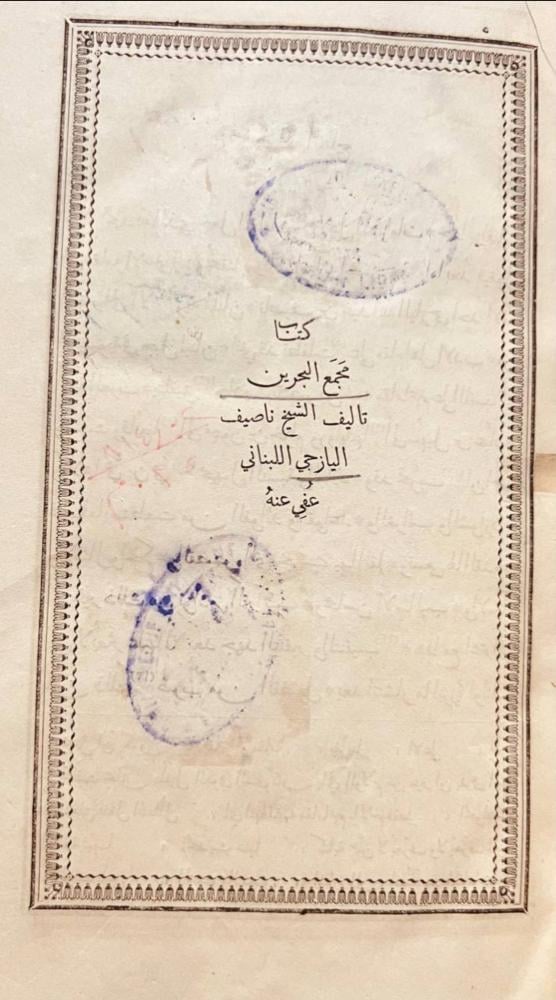 كتاب
مَجمَع البحرين
تاليف الشيخ ناصيف
اليازجي اللبناني
عُفي عنهُ